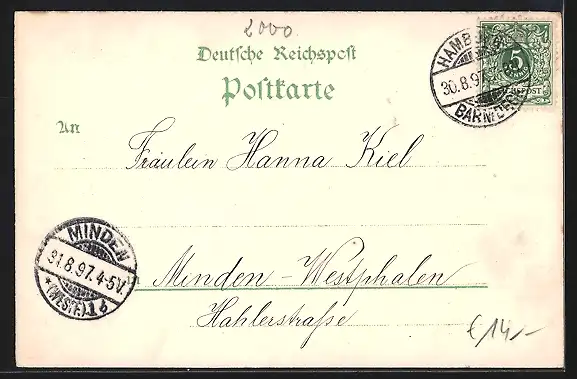 2000
Deutsche Reichspost
Postkarte
An
Fräulein Hanna Kiel
Minden-Westphalen
Hahlerstraße
HAMBURG
30.8.97
BARMBECK
5
REICHSPOST
MINDEN
31.8.97. 4-5V.
*(WESTF.)1b
€ 14,-